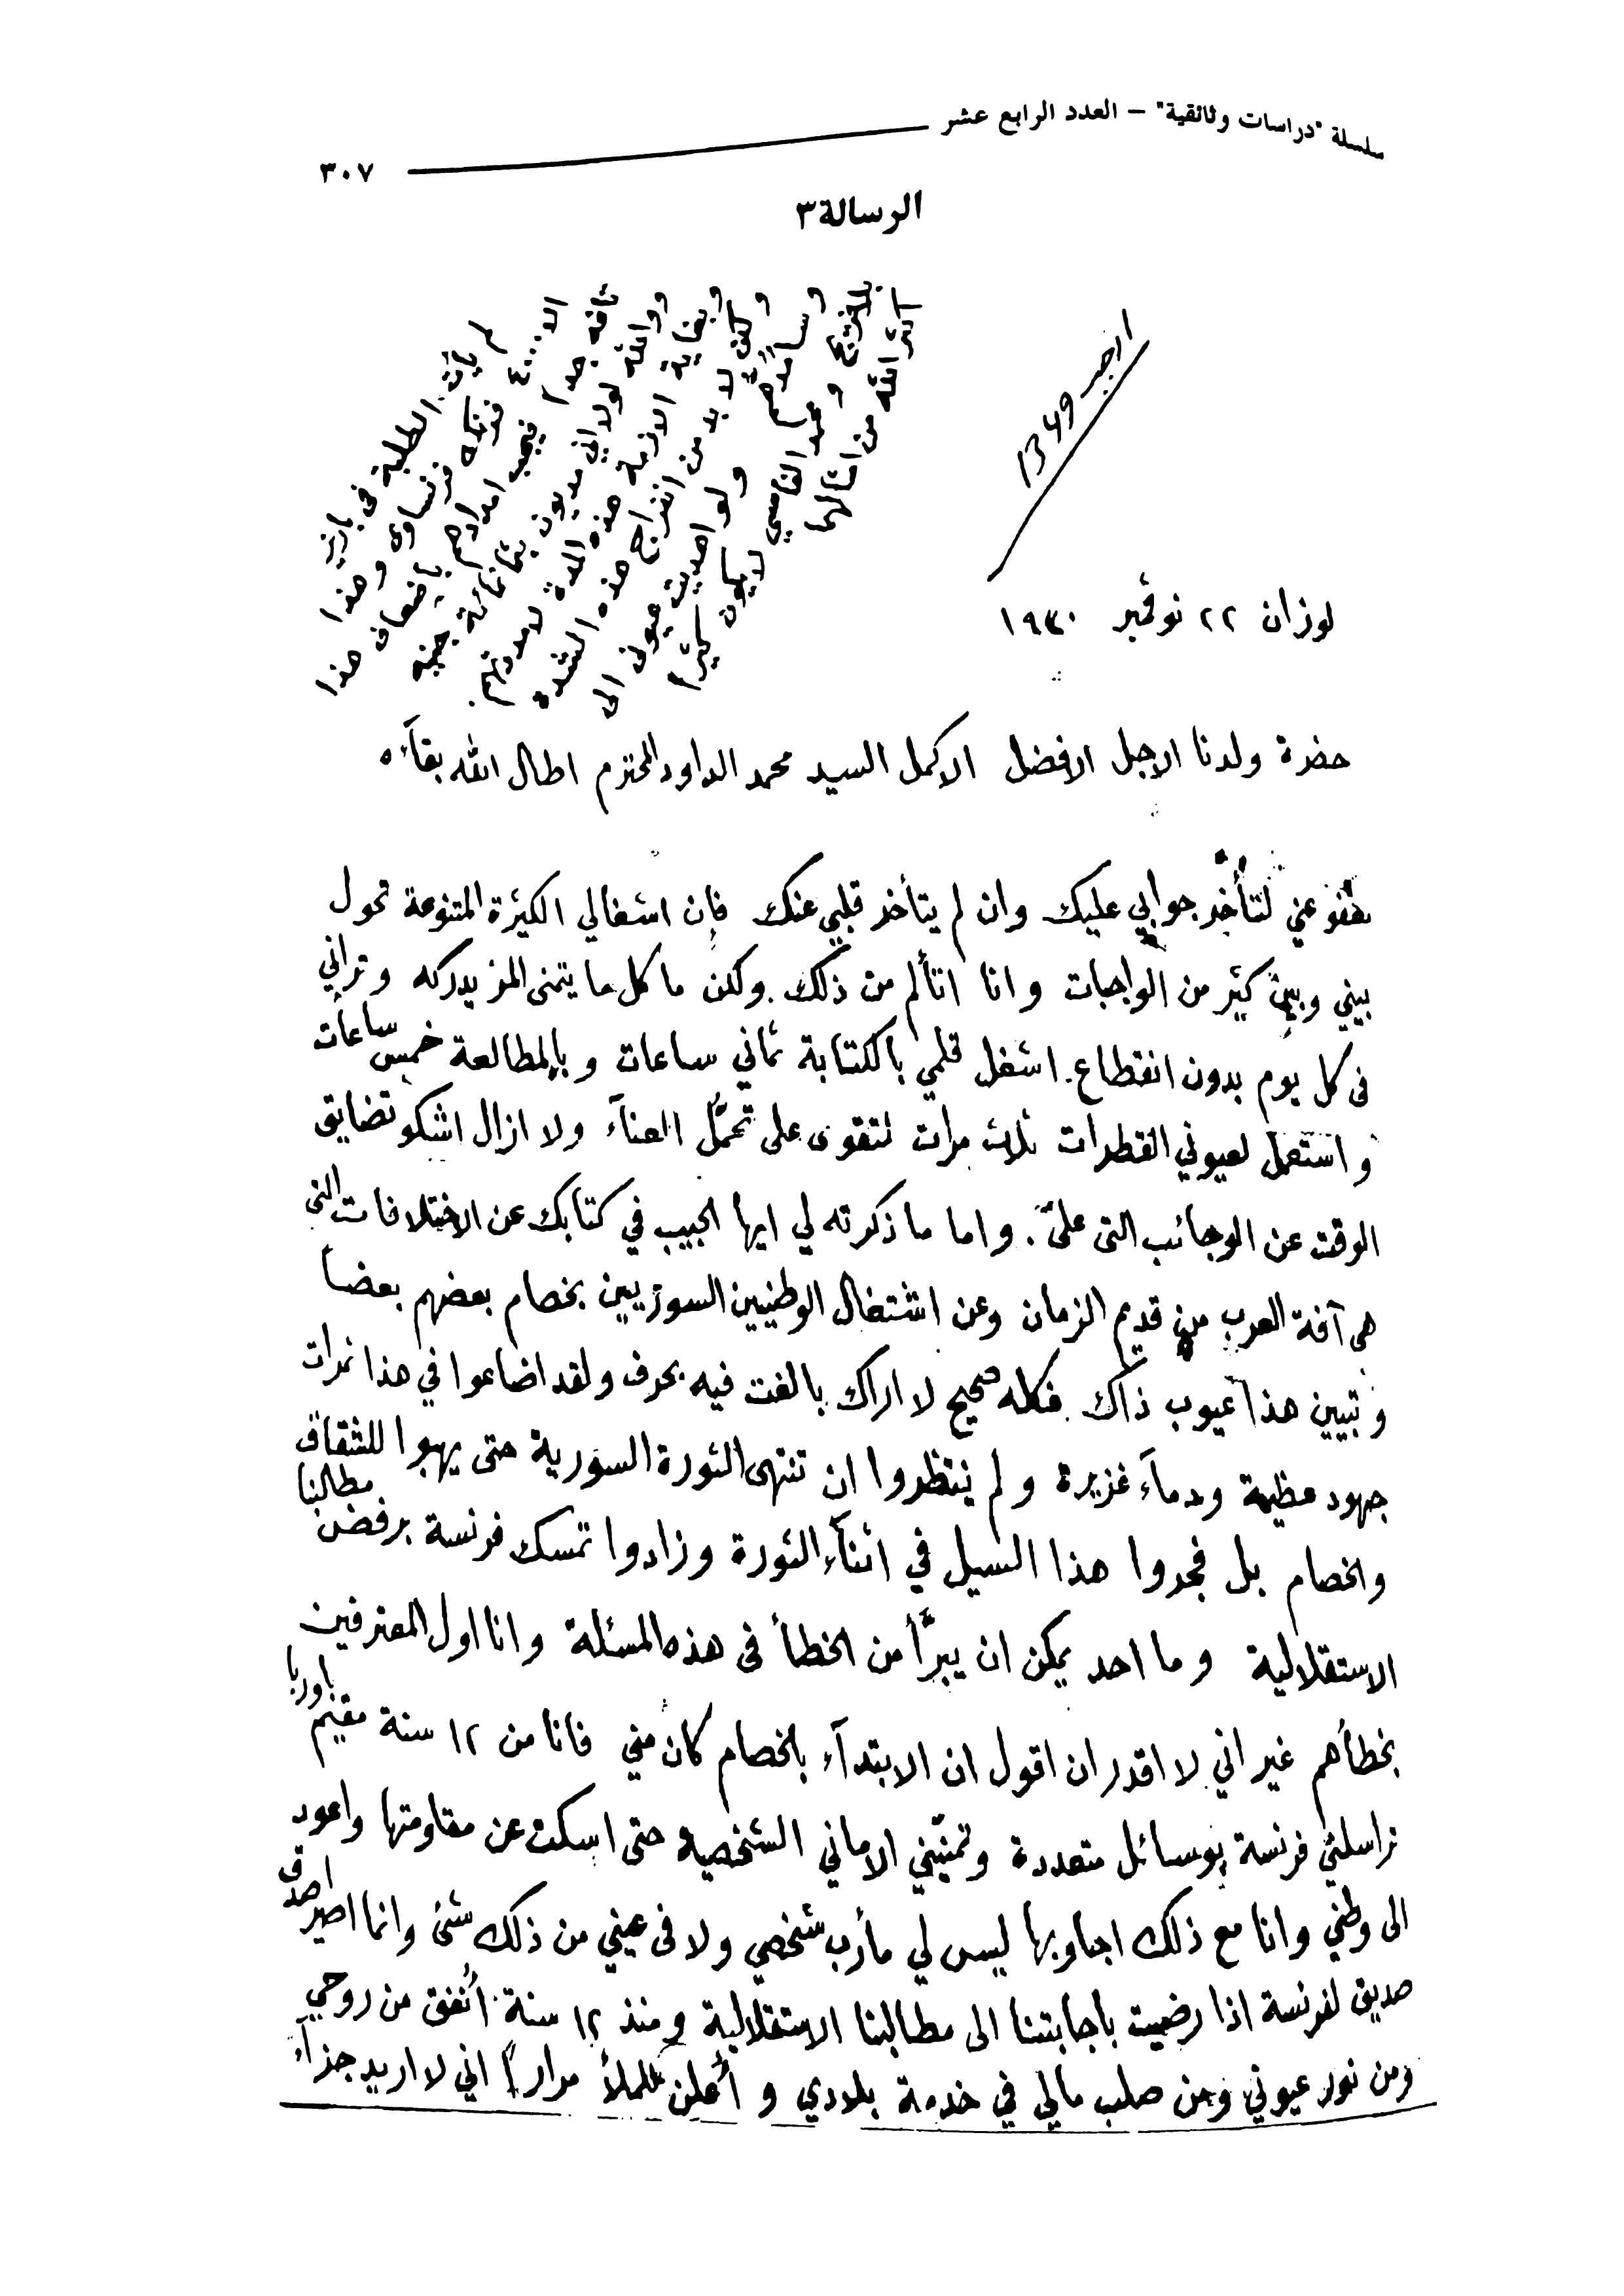 سلسلة "دراسات وثائقية" – العدد الرابع عشر
٣٠٧
الرسالة ٣
اجبر 1349
لوزان ٢٢ نوڤمبر ١٩٣٠
لم يأت الطلبة فى باريز
الا ٤٠٠٠ فرنك فرنساوى وهذا
تافه جدا فيجب امدادهم بأضعاف هذا
ووالله لولا اني مديون بثمانمائة جنيه
وبغاية الازمة هذه المدة لامددتهم
ولكن لا بد من انفراج هذه الشدة
وسأمدهم ولو اهديت عيونى الى
بلفرج وعبد الفاسي لا يكون كثيرا
اكثر الله من امثالهما
حضرة ولدنا الاجل الافضل الاكمل السيد محمد الداود المحترم اطال الله بقآءه
عفو عني لتأخّر جوابي عليك وان لم يتأخر قلبي عنك فإن اشغالي الكثيرة المتنوعة تحول
بيني وبين كثير من الواجبات وانا اتألم من ذلك ولكن ما كل ما يتمنى المرء يدركه وتراني
فى كل يوم بدون انقطاع اشغل قلمي بالكتابة ثماني ساعات وبالمطالعة خمس ساعات
واستعمل لعيوني القطرات ثلاث مرات لتقوى على تحمّل العنآء ولا ازال اشكو تضايق
الوقت عن الوجائب التى علىّ. واما ما ذكرته لي ايها الحبيب في كتابك عن الاختلافات التى
هى آفة العرب من قديم الزمان وعن اشتغال الوطنيين السوريين بخصام بعضهم بعضاً
وتبيين هذا عيوب ذاك فكله صحيح لا اراك بالغت فيه بحرف ولقد اضاعوا في هذا ثمرات
جهود عظيمة ودمآء غزيرة ولم ينتظروا ان تنتهى الثورة السورية حتى يهبوا للشقاق
والخصام بل فجروا هذا السيل في اثنآء الثورة وزادوا تمسك فرنسة برفض مطالبنا
الاستقلالية وما احد يمكن ان يبرّأ من الخطأ فى هذه المسئلة وانا اول المعترفين
بخطأهم غير اني لا اقدر ان اقول ان الابتدآء بالخصام كان مني فانا من ١٢ سنة مقيم باوربا
تراسلني فرنسة بوسائل متعددة وتمنّيني الاماني الشخصية حتى اسكت عن مقاومتها واعود
الى وطني وانا مع ذلك اجاوبها ليس لي مأرب شخصي ولا فى عيني من ذلك شئ وانما اصير اصدق
صديق لفرنسة اذا رضيت باجابتنا الى مطالبنا الاستقلالية ومنذ ١٢ سنة أنفق من روحي
ومن نور عيوني ومن صلب مالي في خدمة بلادي وأعلن للملأ مراراً اني لا اريد جزآء